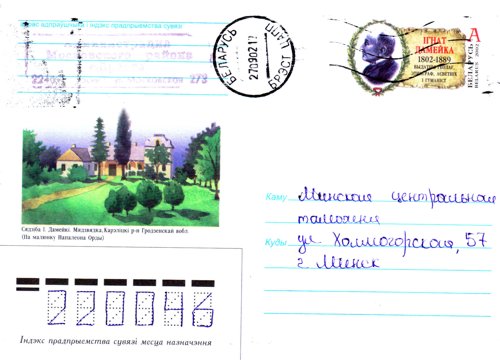 Індэкс прадпрыемства сувязі
БЕЛАРУСЬ
270902 12
БРЭСТ
ІГНАТ
ДАМЕЙКА
1802-1889
ВЫДАТНЫ ГЕОЛАГ,
ЭТНОГРАФ, АСВЕТНІК
І ГУМАНІСТ
A
БЕЛАРУСЬ
BELARUS 2002
Сядзіба І. Дамейкі. Мядзвядка, Карэліцкі р-н Гродзенскай вобл.
(Па малюнку Напалеона Орды)
Каму Минская центральная
таможня
Куды ул. Холмогорская, 57
г. Минск
220046
Індэкс прадпрыемства сувязі месца назначэння